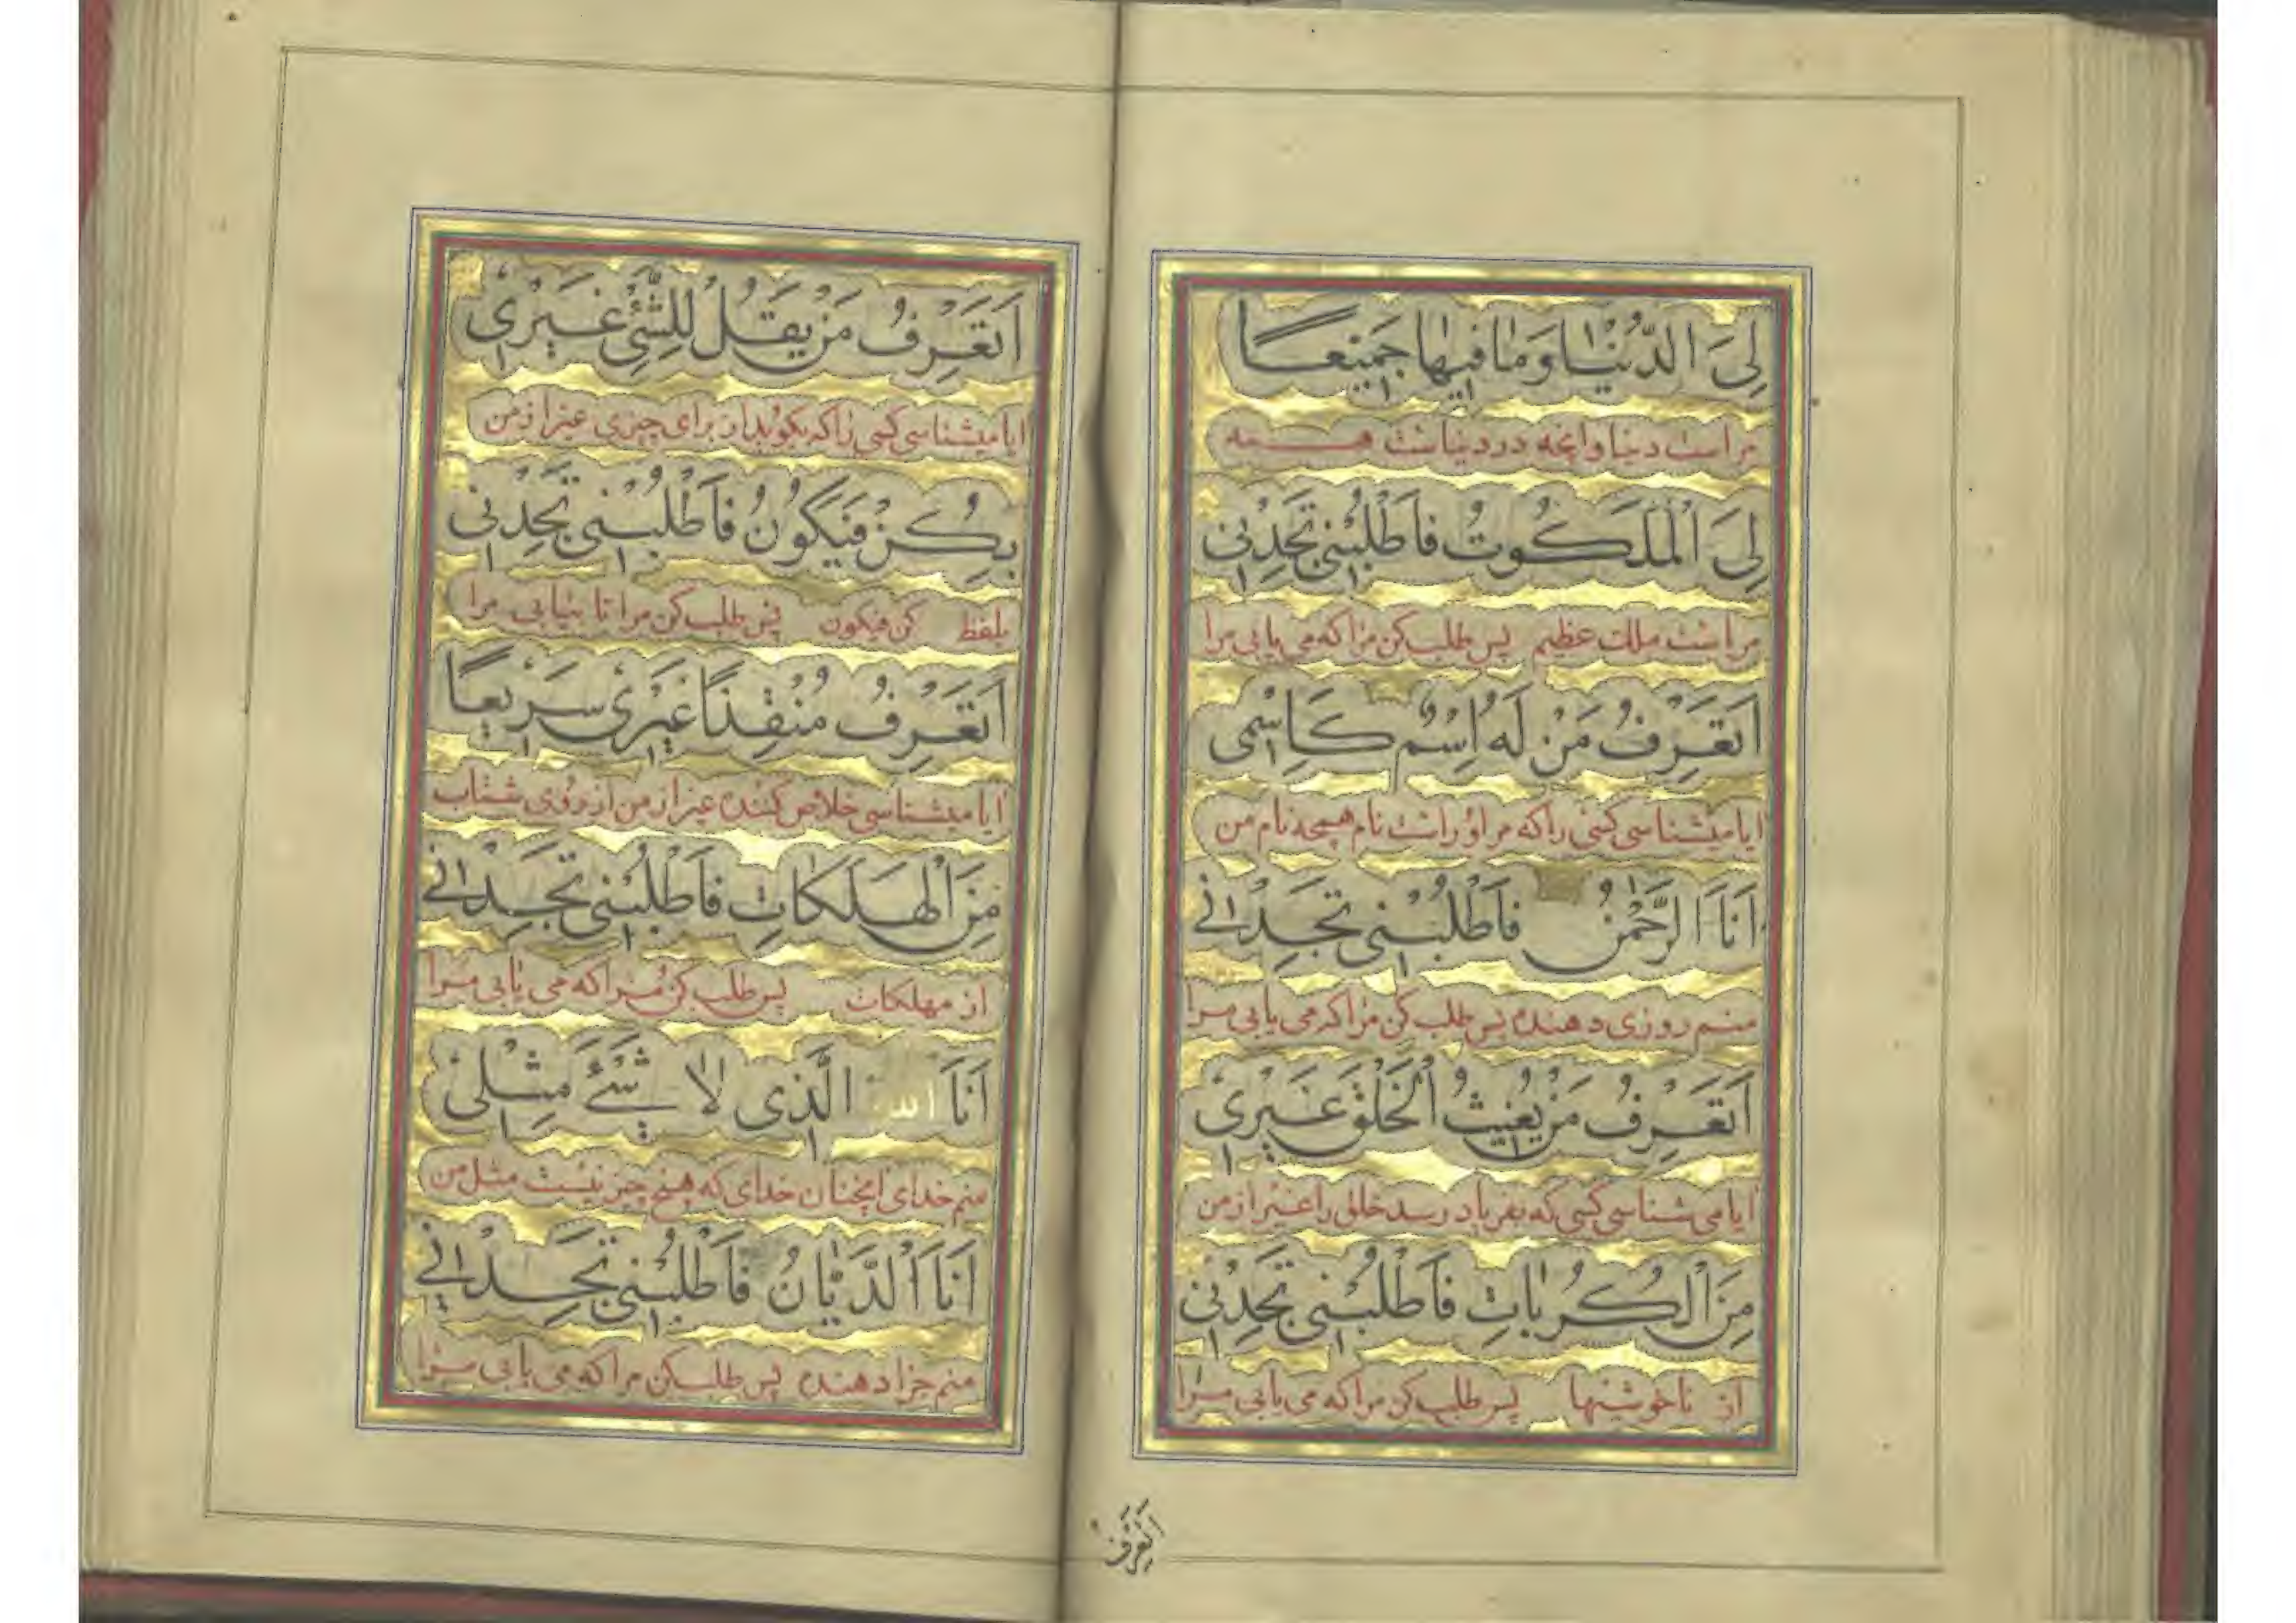 لِيَ الدُّنْيَا وَمَا فِيهَا جَمِيعًا
مراست دنیا و انچه در دنیاست همه
لِيَ الْمَلَكُوتُ فَاطْلُبْنِي تَجِدْنِي
مراست ملک عظیم پس طلب کن مرا که می یابی مرا
اَتَعْرِفُ مَنْ لَهُ اِسْمٌ كَاِسْمِى
ایا میشناسی کسی را که مر اورا است نام همچه نام من
اَنَا الرَّحْمٰنُ فَاطْلُبْنِي تَجِدْنِي
منم روزی دهنده پس طلب کن مرا که می یابی مرا
اَتَعْرِفُ مَنْ يُغِيثُ الْخَلْقَ غَيْرِي
ایا می شناسی کسی که بفریاد رسد خلق را غیر از من
مِنَ الْكُرُبَاتِ فَاطْلُبْنِي تَجِدْنِي
از ناخوشیها پس طلب کن مرا که می یابی مرا
اَتَعْرِفُ
اَتَعْرِفُ مَنْ يَقُلْ لِلشَّيْءِ غَيْرِي
ایا میشناسی کسی را که بکوید از برای چیزی غیر از من
بِكُنْ فَيَكُونُ فَاطْلُبْنِي تَجِدْنِي
بلفظ کن فیکون پس طلب کن مرا تا بیابی مرا
اَتَعْرِفُ مُنْقِذًا غَيْرِي سَرِيعًا
ایا میشناسی خلاص کننده غیر از من از روی شتاب
مِنَ الْهَلَكَاتِ فَاطْلُبْنِي تَجِدْنِي
از مهلکات پس طلب کن مرا که می یابی مرا
اَنَا اللّٰه الَّذِي لَا شَيْءَ مِثْلِي
منم خدای انچنان خدای که هیچ چیز نیست مثل من
اَنَا الدَّيَّانُ فَاطْلُبْنِي تَجِدْنِي
منم جزا دهنده پس طلب کن مرا که می یابی مرا